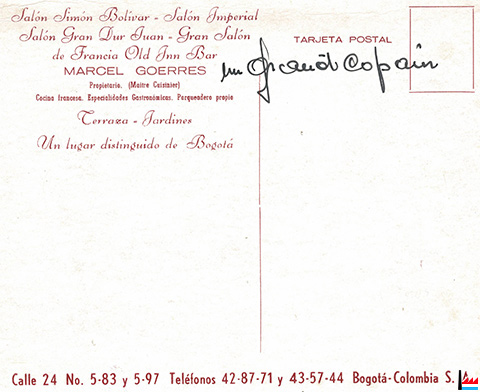 Salón Simón Bolívar - Salón Imperial
Salón Gran Dur Juan - Gran Salón
de Francia Old Inn Bar
MARCEL GOERRES
Propietario. (Maitre Cuisinier)
Cocina francesa. Especialidades Gastronómicas. Parqueadero propio
Terraza - Jardines
Un lugar distinguido de Bogotá
TARJETA POSTAL
un grand copain
Calle 24 No. 5-83 y 5-97 Teléfonos 42-87-71 y 43-57-44 Bogotá-Colombia S. A.